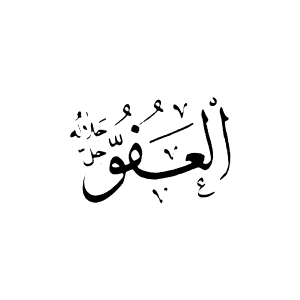 العفوّ
جل جلاله